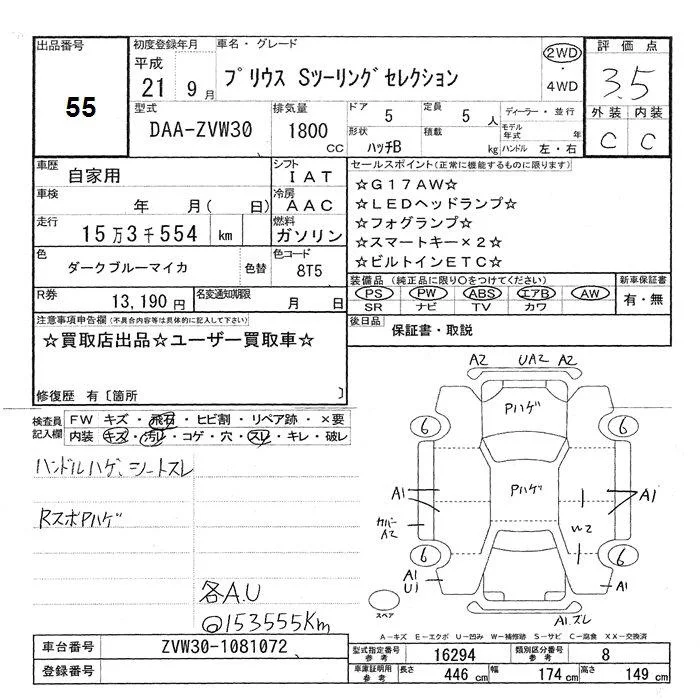 出品番号 初度登録年月 車名・グレード 2WD 評価点
55 平成 21 9月 プリウス Sツーリングセレクション 4WD 3.5
型式 排気量 ドア 5 定員 5人 ディーラー・並行 外装 内装
DAA-ZVW30 1800 CC 形状 ハッチB 積載 kg モデル年式 年 C C
ハンドル 左・右
車歴 自家用 シフト IAT セールスポイント(正常に機能するものに限ります)
車検 年 月( 日) 冷房 AAC ☆G17AW☆
☆LEDヘッドランプ☆
走行 15万3千554 km 燃料 ガソリン ☆フォグランプ☆
☆スマートキー×2☆
色 ダークブルーマイカ 色替 色コード 8T5 ☆ビルトインETC☆
装備品(純正品に限り○をつけてください) 新車保証書
R券 13,190円 名変通知期限 月 日 PS PW ABS エアB AW 有・無
SR ナビ TV カワ
注意事項申告欄(不具合内容等は具体的に記入して下さい) 後日品 保証書・取説
☆買取店出品☆ユーザー買取車☆
修復歴 有〔箇所 〕
検査員記入欄 FW キズ・飛石・ヒビ割・リペア跡・×要
内装 キズ・汚レ・コゲ・穴・スレ・キレ・破レ
ハンドルハゲ、シートスレ
RスポPハゲ
各A.U
@153555Km
A2 UA2 A2
Pハゲ
6 6
Pハゲ
A1 A1
カバー A2 W2
6 6
A1 U1 A1
スペア A1.スレ
A-キズ E-エクボ U-凹み W-補修跡 S-サビ C-腐食 XX-交換済
車台番号 ZVW30-1081072 型式指定番号参考 16294 類別区分番号参考 8
登録番号 車庫証明用参考 長さ 446cm 幅 174cm 高さ 149cm